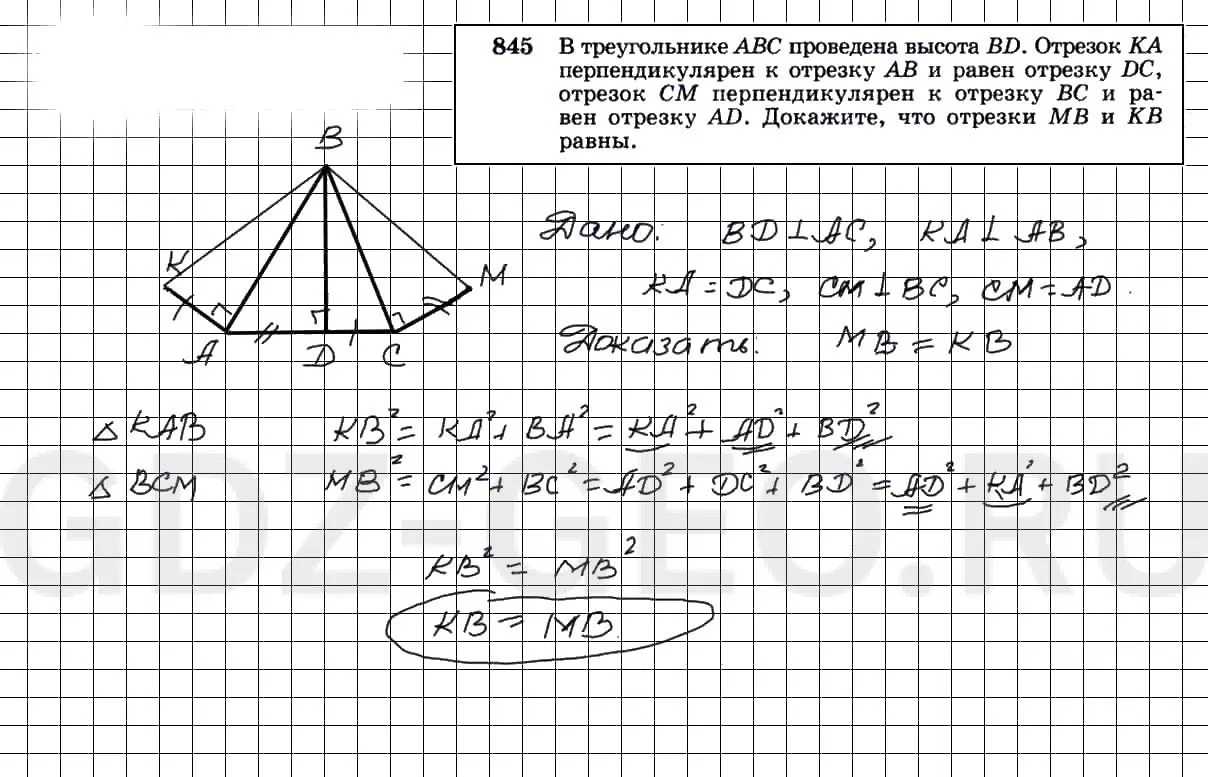 845 В треугольнике ABC проведена высота BD. Отрезок KA
перпендикулярен к отрезку AB и равен отрезку DC,
отрезок CM перпендикулярен к отрезку BC и ра-
вен отрезку AD. Докажите, что отрезки MB и KB
равны.
B
K
M
A
D
C
Дано: BD⊥AC, KA⊥AB,
KA = DC, CM⊥BC, CM = AD.
Доказать: MB = KB
△ KAB KB² = KA² + BA² = KA² + AD² + BD²
△ BCM MB² = CM² + BC² = AD² + DC² + BD² = AD² + KA² + BD²
KB² = MB²
KB = MB
GDZ-GEO.RU